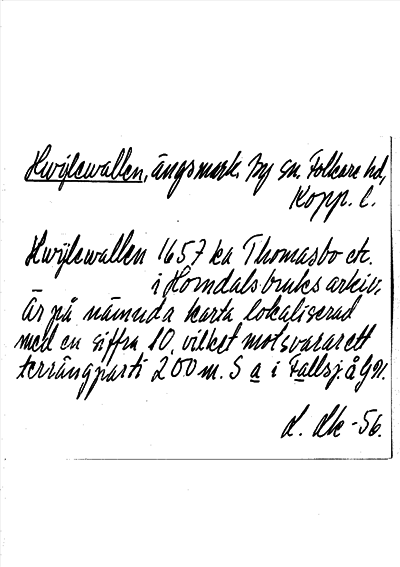 Hwÿlewallen, ängsmark, By sn. Folkare hd,
Kopp. l.
Hwÿlewallen 1657 ka Thomasbo etc.
i Horndalsbruks arkiv,
Är på nämnda karta lokaliserad
med en siffra 10, vilket motsvarar ett
terrängparti 200 m. S a i Fallsjå